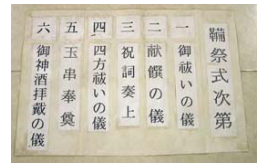 鞴祭式次第
一 御祓いの儀
二 献饌の儀
三 祝詞奏上
四 四方祓いの儀
五 玉串奉奠
六 御神酒拝戴の儀